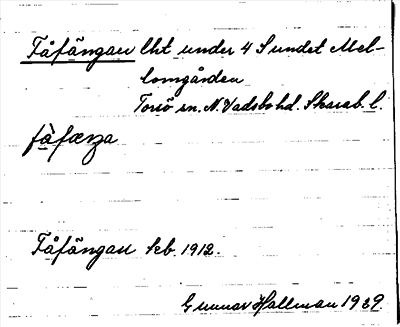 Fåfängan lht under 4 Sundet Mel-
lomgården
Torsö sn. N. Vadsbo hd. Skarab. l.
fàfæŋa
Fåfängan kb. 1912.
Gunnar Hallman 1939.